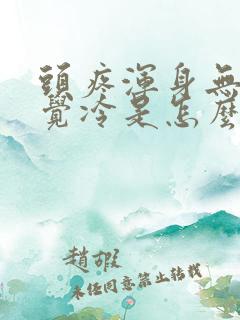 頭疼渾身無
覺冷是怎麼
趙嘏
未经同意禁止转载